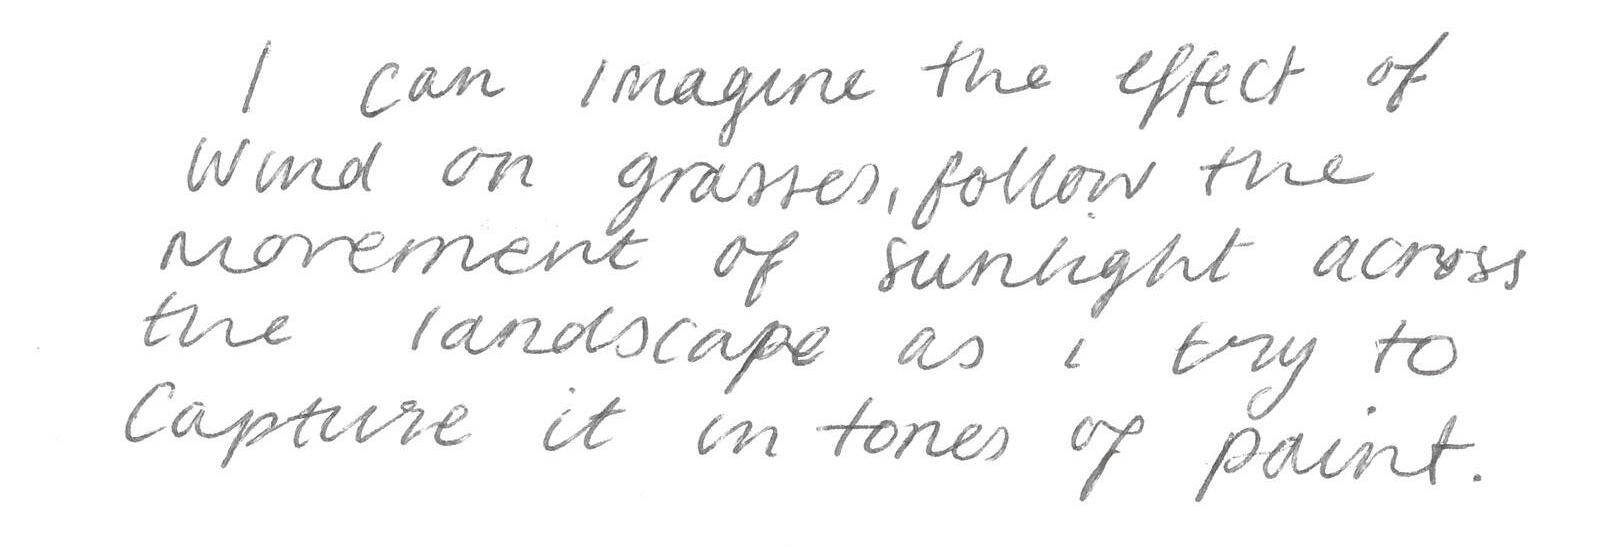 I can imagine the effect of
wind on grasses, follow the
movement of sunlight across
the landscape as i try to
capture it in tones of paint.